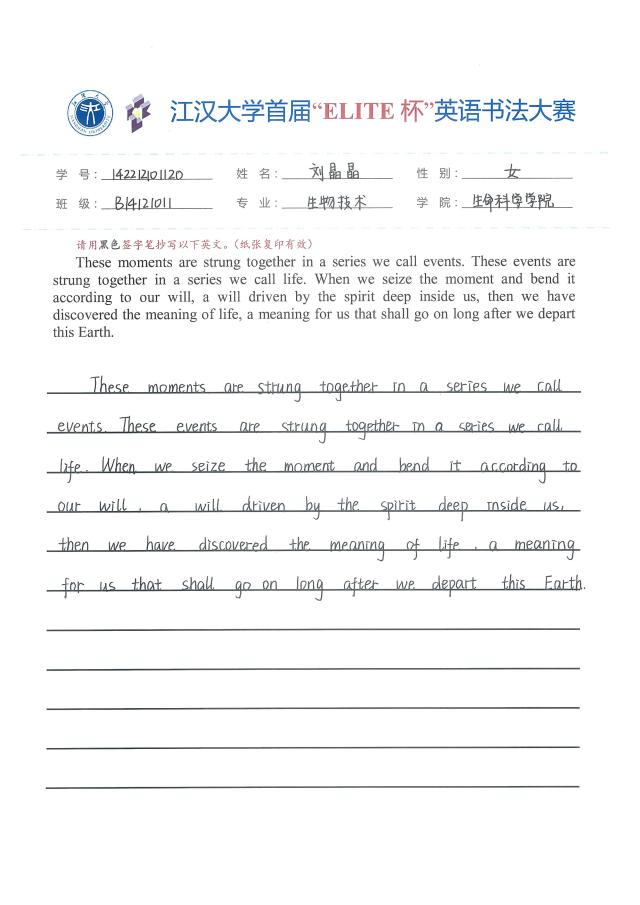 江汉大学首届“ELITE 杯”英语书法大赛
学 号：142212101120 姓 名：刘晶晶 性 别：女
班 级：B14121011 专 业：生物技术 学 院：生命科学学院
请用黑色签字笔抄写以下英文。（纸张复印有效）
These moments are strung together in a series we call events. These events are
strung together in a series we call life. When we seize the moment and bend it
according to our will, a will driven by the spirit deep inside us, then we have
discovered the meaning of life, a meaning for us that shall go on long after we depart
this Earth.
These moments are strung together in a series we call
events. These events are strung together in a series we call
life. When we seize the moment and bend it according to
our will, a will driven by the spirit deep inside us,
then we have discovered the meaning of life, a meaning
for us that shall go on long after we depart this Earth.